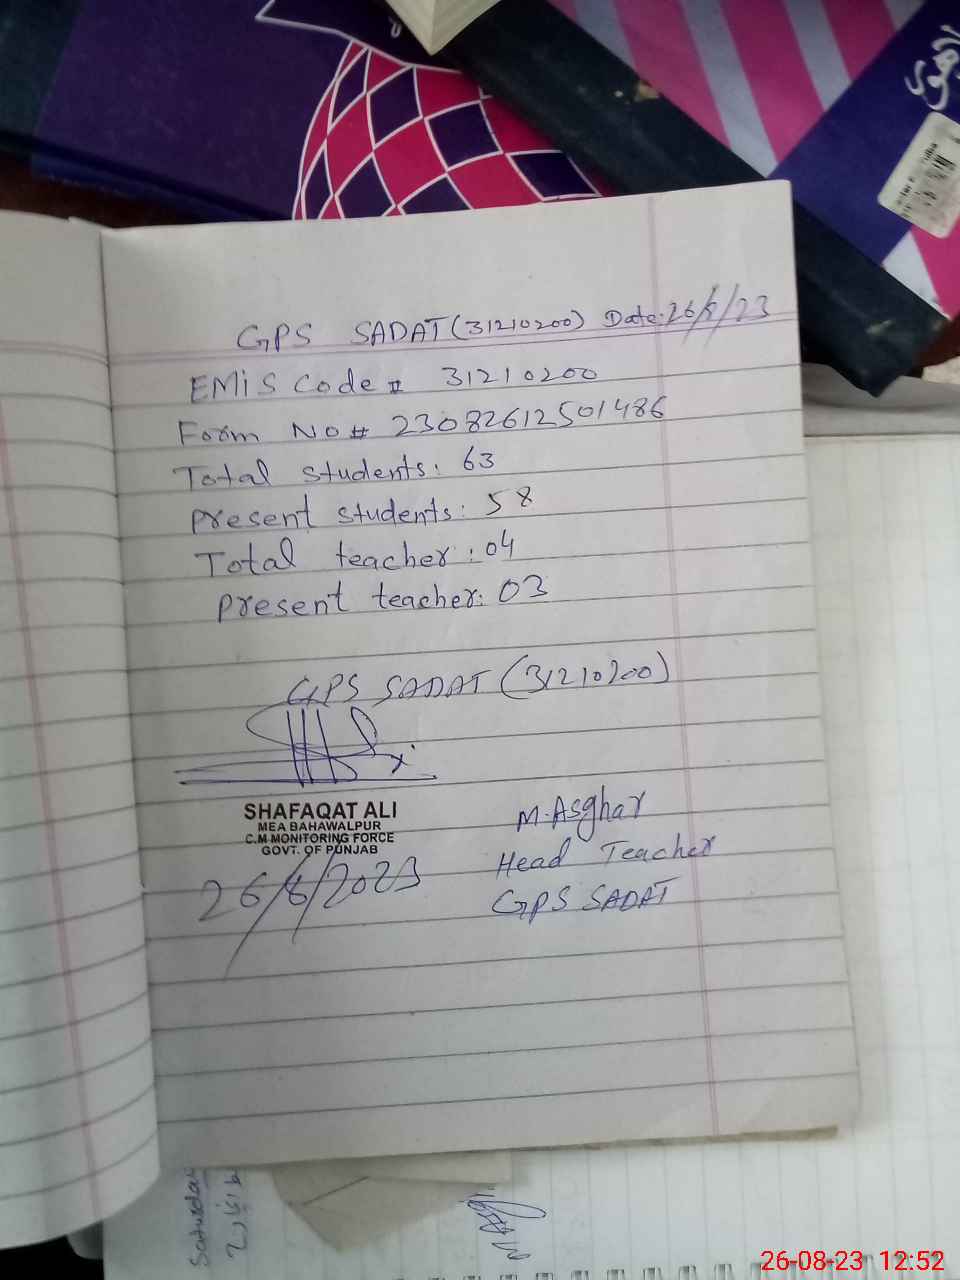 GPS SADAT (31210200) Date: 26/8/23
EMiS Code # 31210200
Form No # 23082612501486
Total students: 63
present students: 58
Total teacher: 04
present teacher: 03
GPS SADAT (31210200)
SHAFAQAT ALI
MEA BAHAWALPUR
C.M MONITORING FORCE
GOVT. OF PUNJAB
26/8/2023
M. Asghar
Head Teacher
GPS SADAT
26-08-23 12:52